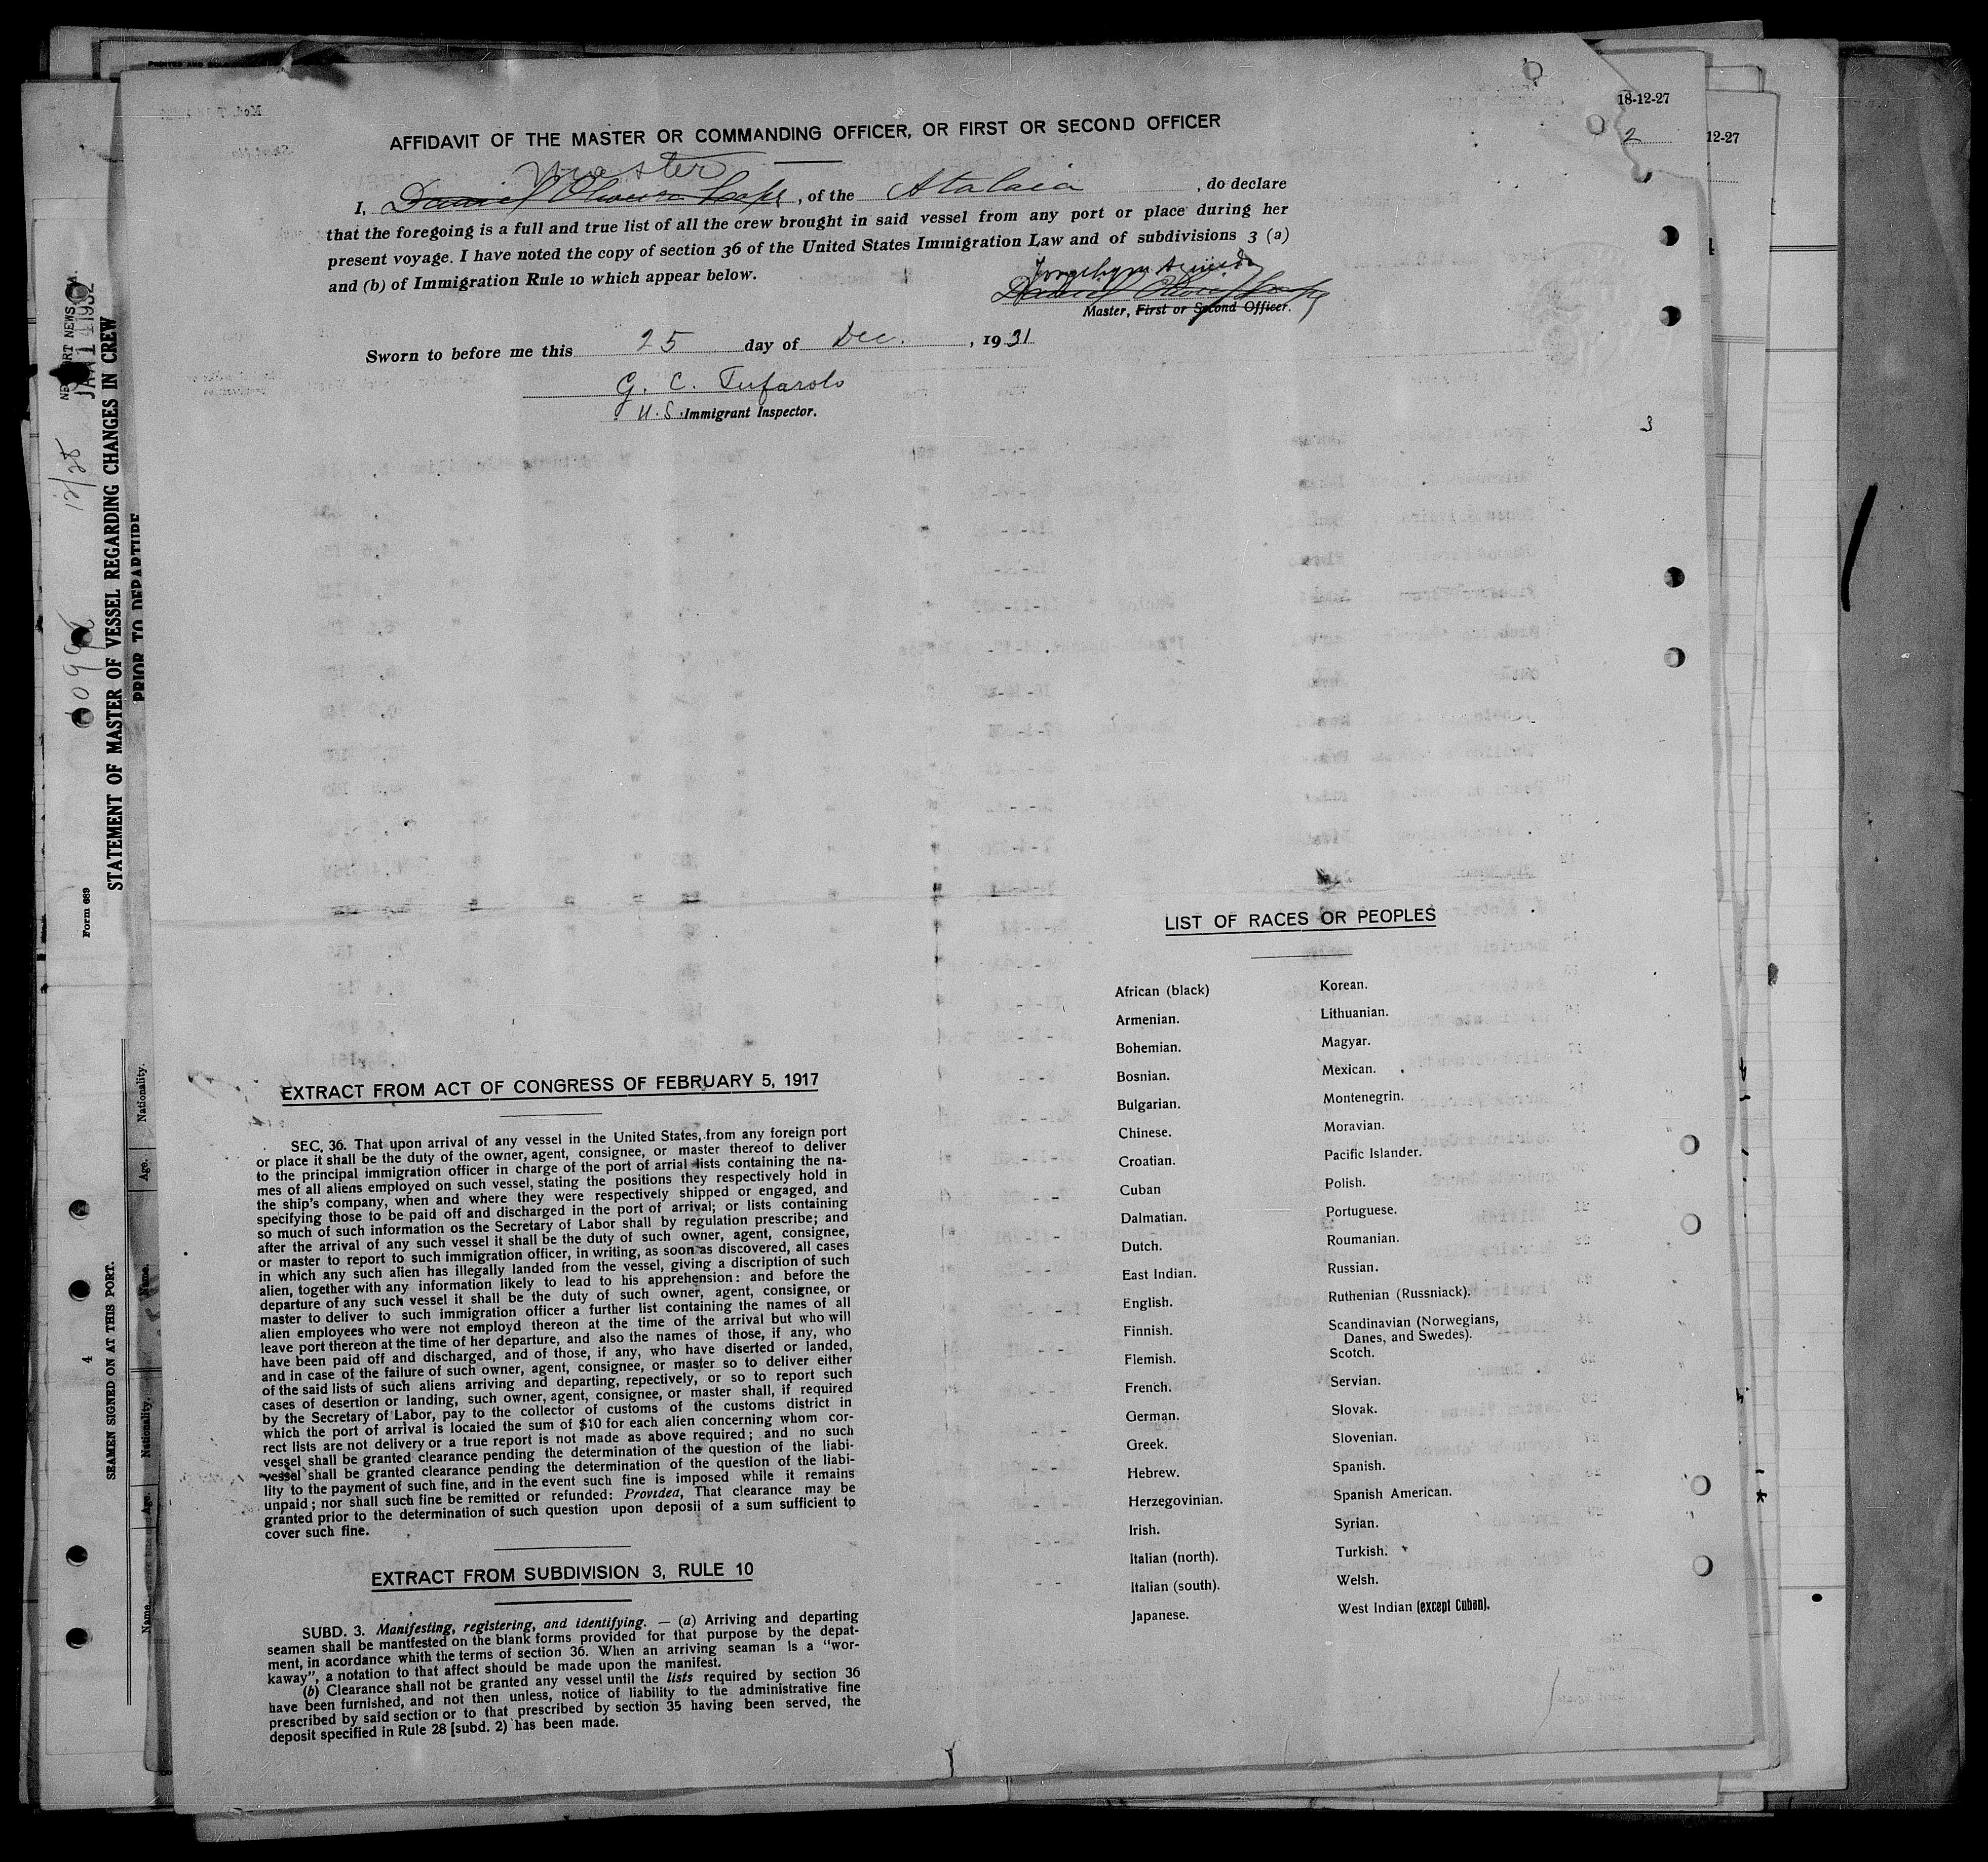 18-12-27
2
12-27
AFFIDAVIT OF THE MASTER OR COMMANDING OFFICER, OR FIRST OR SECOND OFFICER
Master
I, Daniel, of the Atalaia, do declare
that the foregoing is a full and true list of all the crew brought in said vessel from any port or place during her
present voyage. I have noted the copy of section 36 of the United States Immigration Law and of subdivisions 3 (a)
and (b) of Immigration Rule 10 which appear below.
Master, First or Second Officer.
Sworn to before me this 25 day of Dec., 1931
G. C. Tufarolo
U.S. Immigrant Inspector.
3
LIST OF RACES OR PEOPLES
African (black)
Armenian.
Bohemian.
Bosnian.
Bulgarian.
Chinese.
Croatian.
Cuban
Dalmatian.
Dutch.
East Indian.
English.
Finnish.
Flemish.
French.
German.
Greek.
Hebrew.
Herzegovinian.
Irish.
Italian (north).
Italian (south).
Japanese.
Korean.
Lithuanian.
Magyar.
Mexican.
Montenegrin.
Moravian.
Pacific Islander.
Polish.
Portuguese.
Roumanian.
Russian.
Ruthenian (Russniack).
Scandinavian (Norwegians,
Danes, and Swedes).
Scotch.
Servian.
Slovak.
Slovenian.
Spanish.
Spanish American.
Syrian.
Turkish.
Welsh.
West Indian (except Cuban).
EXTRACT FROM ACT OF CONGRESS OF FEBRUARY 5, 1917
SEC. 36. That upon arrival of any vessel in the United States, from any foreign port
or place it shall be the duty of the owner, agent, consignee, or master thereof to deliver
to the principal immigration officer in charge of the port of arrial lists containing the na-
mes of all aliens employed on such vessel, stating the positions they respectively hold in
the ship's company, when and where they were respectively shipped or engaged, and
specifying those to be paid off and discharged in the port of arrival; or lists containing
so much of such information os the Secretary of Labor shall by regulation prescribe; and
after the arrival of any such vessel it shall be the duty of such owner, agent, consignee,
or master to report to such immigration officer, in writing, as soon as discovered, all cases
in which any such alien has illegally landed from the vessel, giving a discription of such
alien, together with any information likely to lead to his apprehension: and before the
departure of any such vessel it shall be the duty of such owner, agent, consignee, or
master to deliver to such immigration officer a further list containing the names of all
alien employees who were not employd thereon at the time of the arrival but who will
leave port thereon at the time of her departure, and also the names of those, if any, who
have been paid off and discharged, and of those, if any, who have diserted or landed,
and in case of the failure of such owner, agent, consignee, or master so to deliver either
of the said lists of such aliens arriving and departing, repectively, or so to report such
cases of desertion or landing, such owner, agent, consignee, or master shall, if required
by the Secretary of Labor, pay to the collector of customs of the customs district in
which the port of arrival is locaied the sum of $10 for each alien concerning whom cor-
rect lists are not delivery or a true report is not made as above required; and no such
vessel shall be granted clearance pending the determination of the question of the liabi-
vessel shall be granted clearance pending the determination of the question of the liabi-
lity to the payment of such fine, and in the event such fine is imposed while it remains
unpaid; nor shall such fine be remitted or refunded: Providea, That clearance may be
granted prior to the determination of such question upon deposii of a sum sufficient to
cover such fine.
EXTRACT FROM SUBDIVISION 3, RULE 10
SUBD. 3. Manifesting, registering, and identifying. — (a) Arriving and departing
seamen shall be mantfested on the blank forms provided for that purpose by the depat-
ment, in acordance whith the terms of section 36. When an arriving seaman Is a "wor-
kaway", a notation to that affect should be made upon the manifest.
(b) Clearance shall not be granted any vessel until the lists required by section 36
have been furnished, and not then unless, notice of liability to the administrative fine
prescribed by said section or to that prescribed by section 35 having been served, the
deposit specified in Rule 28 [subd. 2) has been made.
JAN 14 1932
12/25
Form 689
STATEMENT OF MASTER OF VESSEL REGARDING CHANGES IN CREW
PRIOR TO DEPARTURE
4
SEAMEN SIGNED ON AT THIS PORT.
Name.
Age.
Nationality.
Name.
Age.
Nationality.